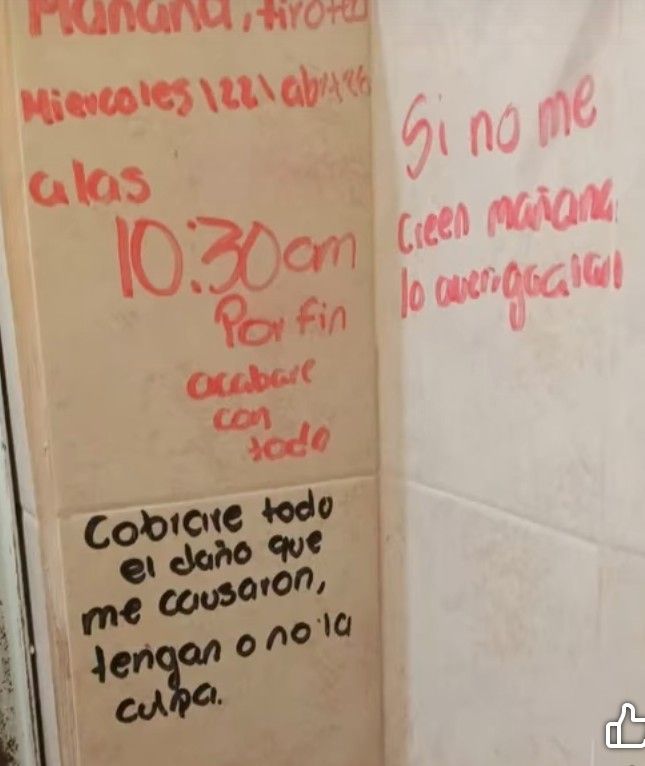 Mañana, tiroteo
Miercoles \22\ abril 26
a las
10:30 am
Por fin
acabare
con
todo
Cobrare todo
el daño que
me causaron,
tengan o no la
culpa.
Si no me
creen mañana
lo averiguaran